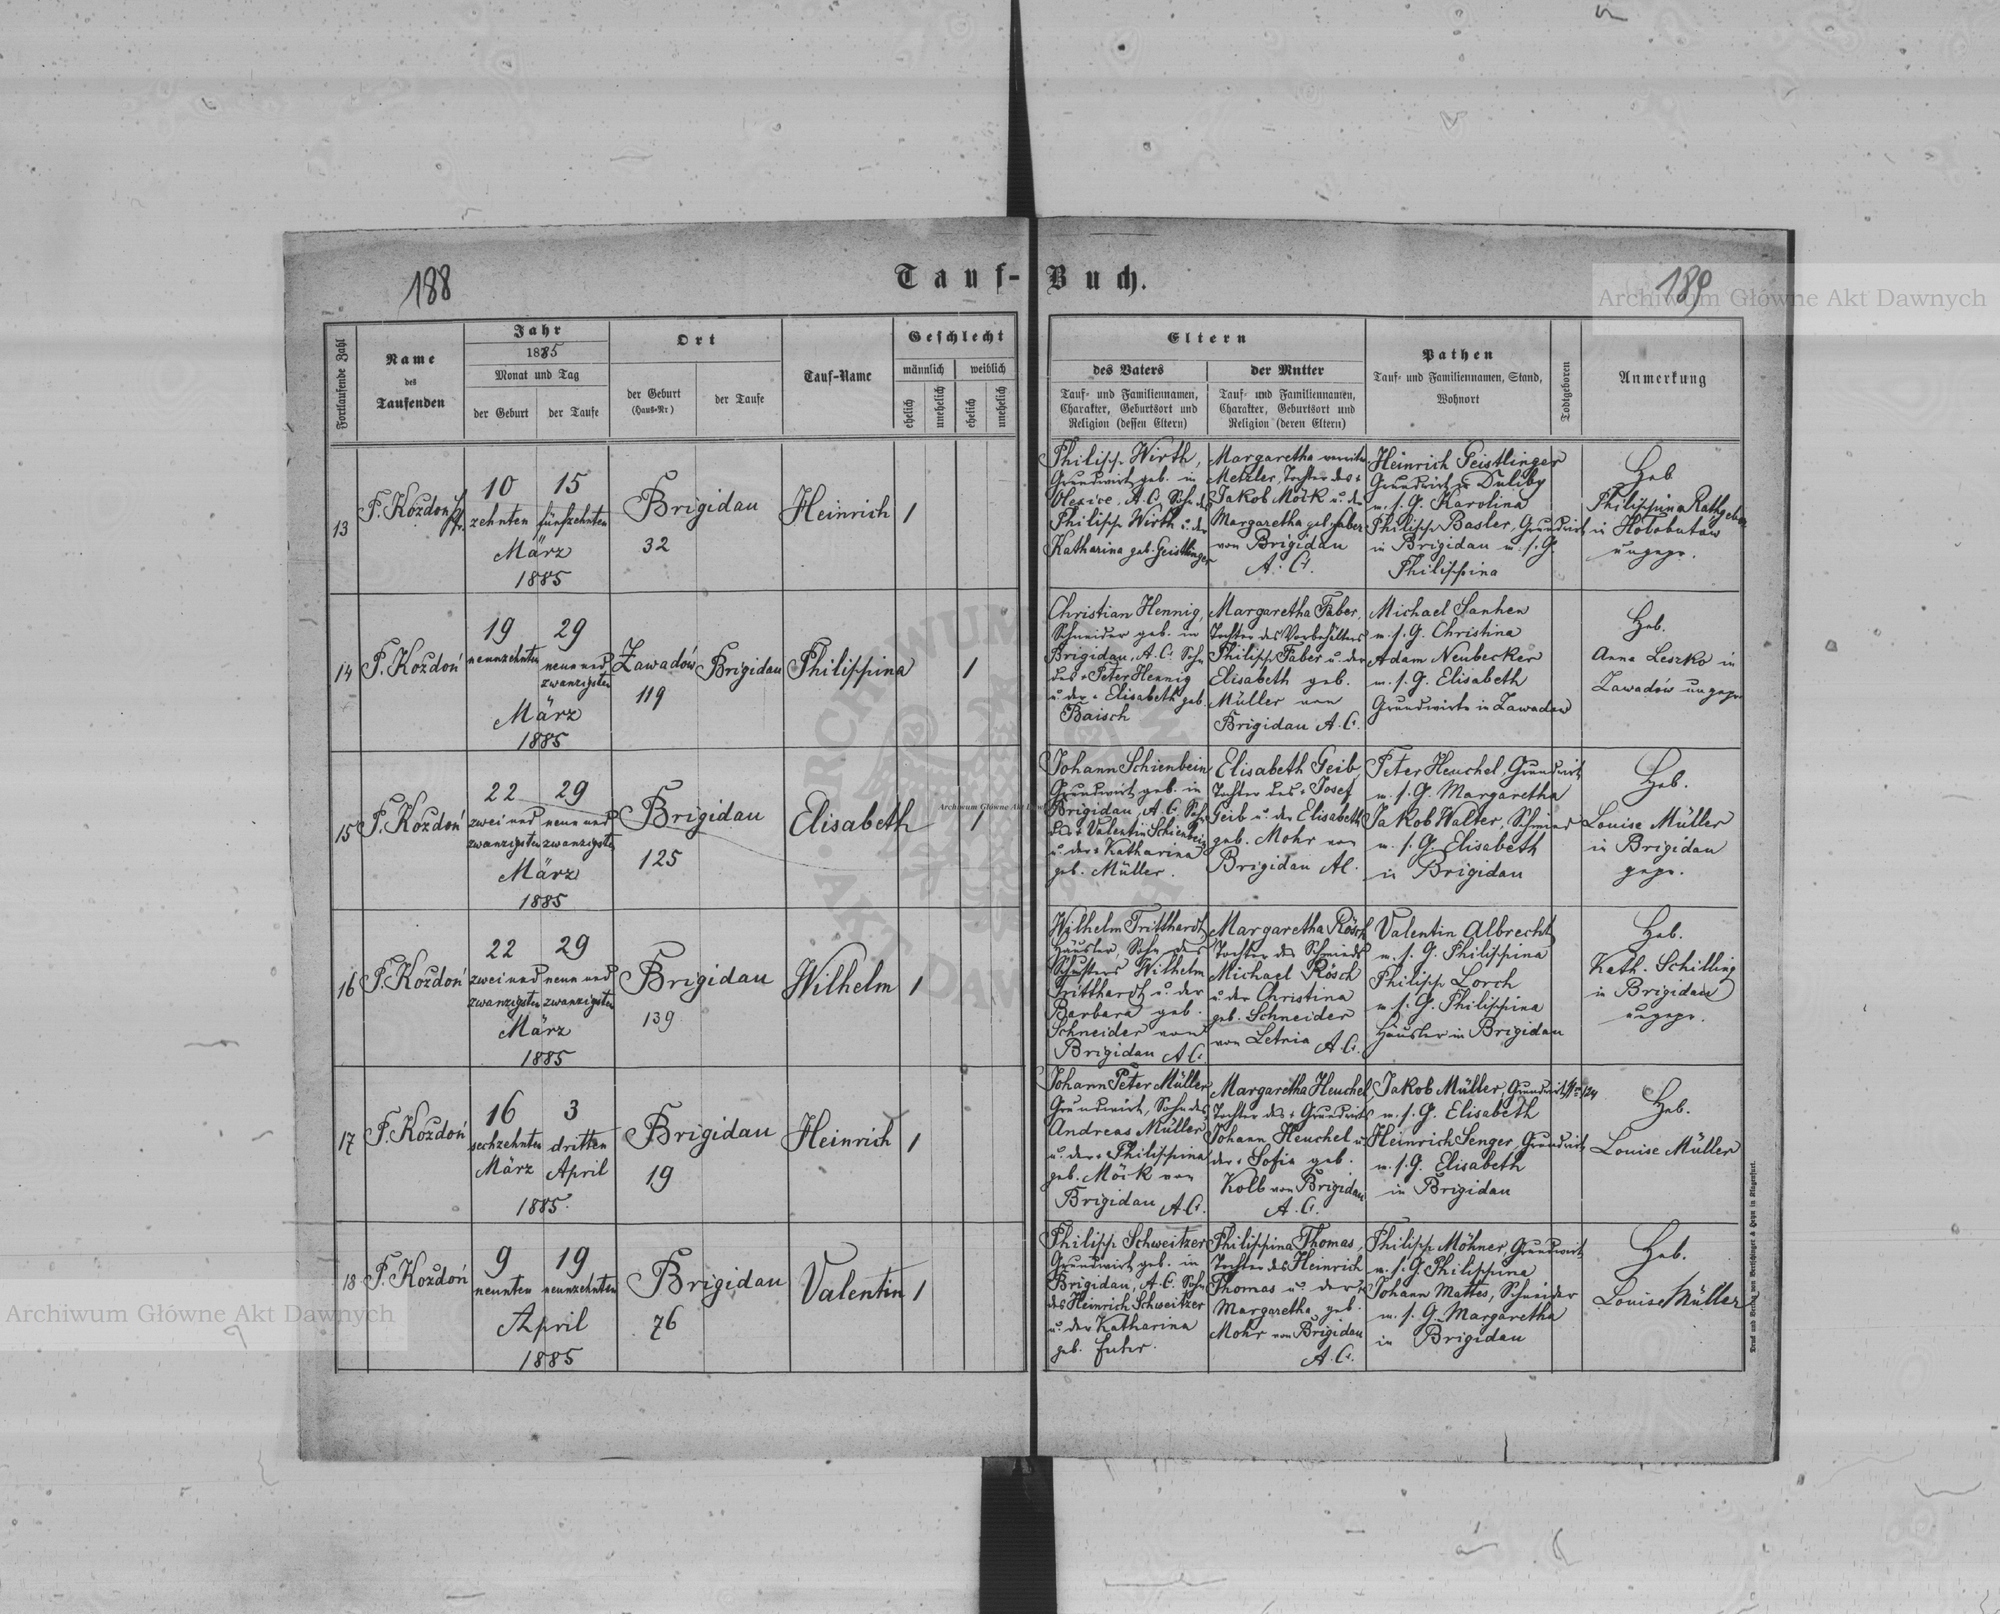 188
Tauf-
Buch.
189
Archiwum Główne Akt Dawnych
Fortlaufende Zahl
Name
des
Taufenden
Jahr
1885
Monat und Tag
der Geburt
der Taufe
Ort
der Geburt
(Haus-Nr)
der Taufe
Tauf-Name
Geschlecht
männlich
weiblich
ehelich
unehelich
ehelich
unehelich
Eltern
des Vaters
Tauf- und Familiennamen,
Charakter, Geburtsort und
Religion (dessen Eltern)
der Mutter
Tauf- und Familiennamen,
Charakter, Geburtsort und
Religion (deren Eltern)
Pathen
Tauf- und Familiennamen, Stand,
Wohnort
Todtgeboren
Anmerkung
13
P. Kozdoń
10
zehnten
15
fünfzehnten
März
1885
Brigidau
32
Heinrich
1
Philipp Wirth,
Grundwirt geb. in
A. C. Sohn des
Philipp Wirth u. der
Katharina geb. Geistlinger
Margaretha
Metzler, Tochter des +
Jakob Möck u. der
Margaretha geb. Faber
von Brigidau
A. C.
Heinrich Geistlinger
Grundwirt zu Duliby
m. s. G. Karolina
Philipp Basler, Grundwirt
in Brigidau m. s. G.
Philippina
Heb.
Philippina Rathgeber
in Hołobutów
ungepr.
14
P. Kozdoń
19
neunzehnten
29
neun und
zwanzigsten
März
1885
Zawadów
119
Brigidau
Philippina
1
Christian Hennig,
Schneider geb. in
Brigidau, A. C. Sohn
des + Peter Hennig
u. der + Elisabeth geb.
Baisch
Margaretha Faber,
Tochter des Vorbehälters
Philipp Faber u. der
Elisabeth geb.
Müller von
Brigidau A. C.
Michael Manhen
m. s. G. Christina
Adam Neubecker
m. s. G. Elisabeth
Grundwirte in Zawadów
Heb.
Anna Leszko in
Zawadów ungepr.
15
P. Kozdoń
22
zwei und
zwanzigsten
29
neun und
zwanzigsten
März
1885
Brigidau
125
Elisabeth
1
Johann Schienbein
Grundwirt geb. in
Brigidau, A. C. Sohn
des + Valentin Schienbein
u. der + Katharina
geb. Müller.
Elisabeth Geib,
Tochter des + Josef
Geib u. der Elisabeth
geb. Mohr von
Brigidau AC.
Peter Heuchel, Grundwirt
m. s. G. Margaretha
Jakob Walter, Schmied
m. s. G. Elisabeth
in Brigidau
Heb.
Louise Müller
in Brigidau
gepr.
16
P. Kozdoń
22
zwei und
zwanzigsten
29
neun und
zwanzigsten
März
1885
Brigidau
139
Wilhelm
1
Wilhelm Tritthardt
Häusler, Sohn des
Schusters Wilhelm
Tritthardt u. der
Barbara geb.
Schneider von
Brigidau A C.
Margaretha Rösch
Tochter des Schmieds
Michael Rösch
u. der Christina
geb. Schneider
von Letnia A. C.
Valentin Albrecht
m. s. G. Philippina
Philipp Lorch
m. s. G. Philippina
Häusler in Brigidau
Heb.
Kath. Schilling
in Brigidau
ungepr.
17
P. Kozdoń
16
sechzehnten
März
3
dritten
April
1885.
Brigidau
19
Heinrich
1
Johann Peter Müller
Grundwirt, Sohn des
Andreas Müller
u. der + Philippina
geb. Möck von
Brigidau A. C.
Margaretha Heuchel,
Tochter des + Grundwirts
Johann Heuchel u.
der + Sofia geb.
Kolb von Brigidau
A. C.
Jakob Müller, Grundwirt Nr 124
m. s. G. Elisabeth
Heinrich Senger, Grundwirt
m. s. G. Elisabeth
in Brigidau
Heb.
Louise Müller
18
P. Kozdoń
9
neunten
19
neunzehnten
April
1885
Brigidau
76
Valentin
1
Philipp Schweitzer
Grundwirt geb. in
Brigidau, A. C. Sohn
des Heinrich Schweitzer
u. der Katharina
geb.
Philippina Thomas,
Tochter des Heinrich
Thomas u. der +
Margaretha, geb.
Mohr von Brigidau
A. C.
Philipp Möhner, Grundwirt
m. s. G. Philippina
Johann Mattes, Schneider
m. s. G. Margaretha
in Brigidau
Heb.
Louise Müller
Archiwum Główne Akt Dawnych